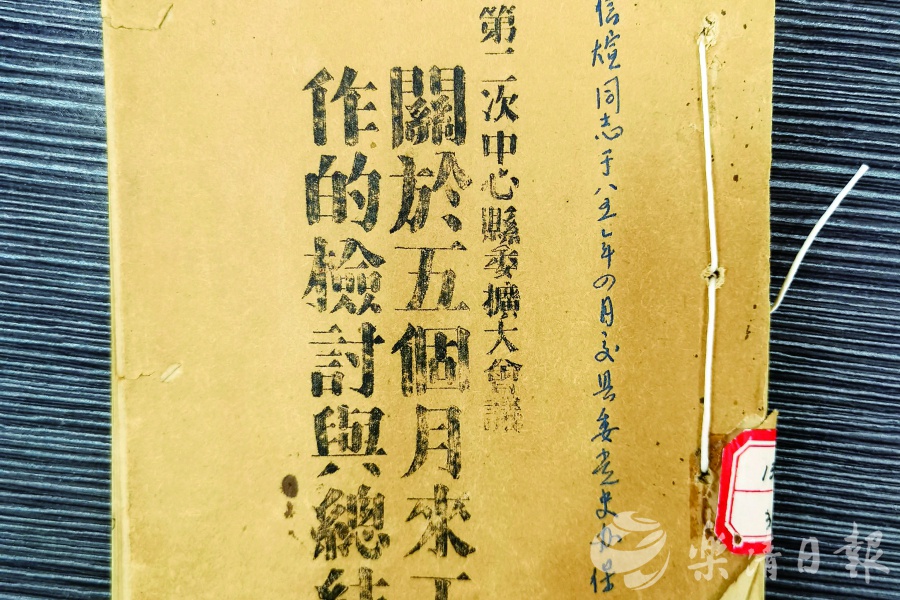 信煊同志于八五年四月交县委党史办保
第二次中心縣委擴大會議
關於五個月來工
作的檢討與總結
樂清日報